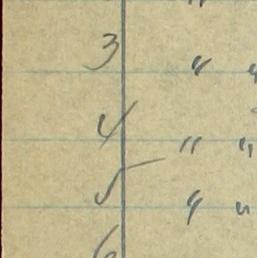 "
3 " "
4 " "
5 " "
6